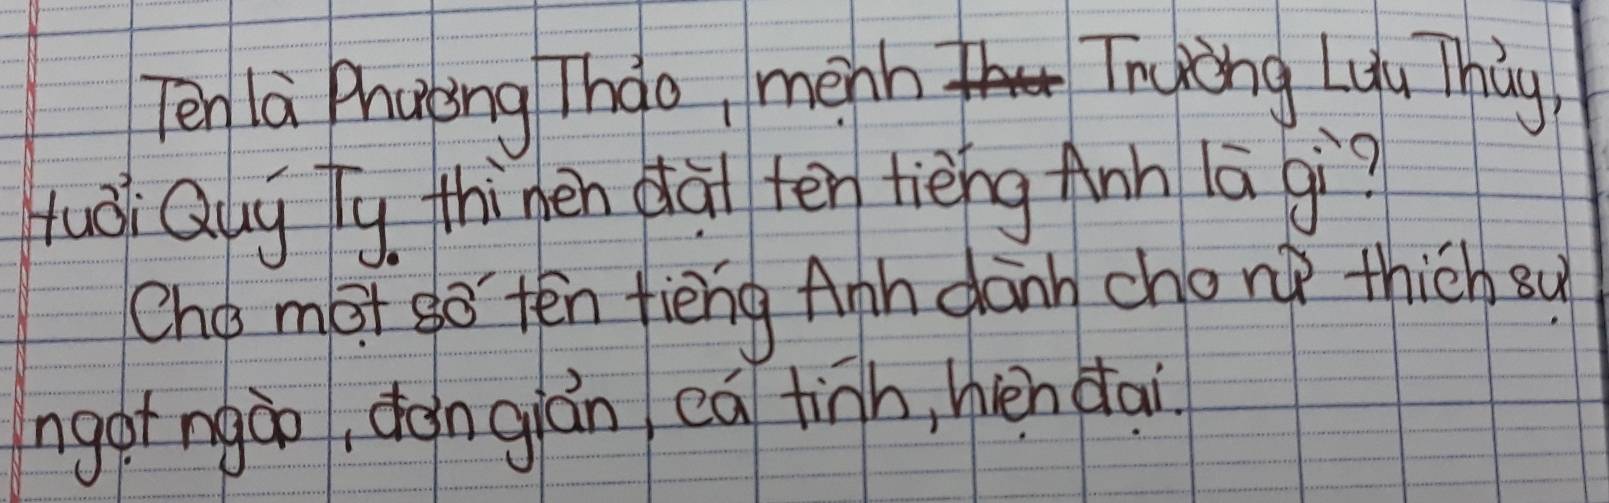 Tên là Phương Thảo, mệnh Thu Trường Lưu Thủy,
tuổi Quý Tỵ thì nên đặt tên tiếng Anh là gì?
Cho một số tên tiếng Anh dành cho nữ thích sự
ngọt ngào, đơn giản, cá tính, hiện đại.